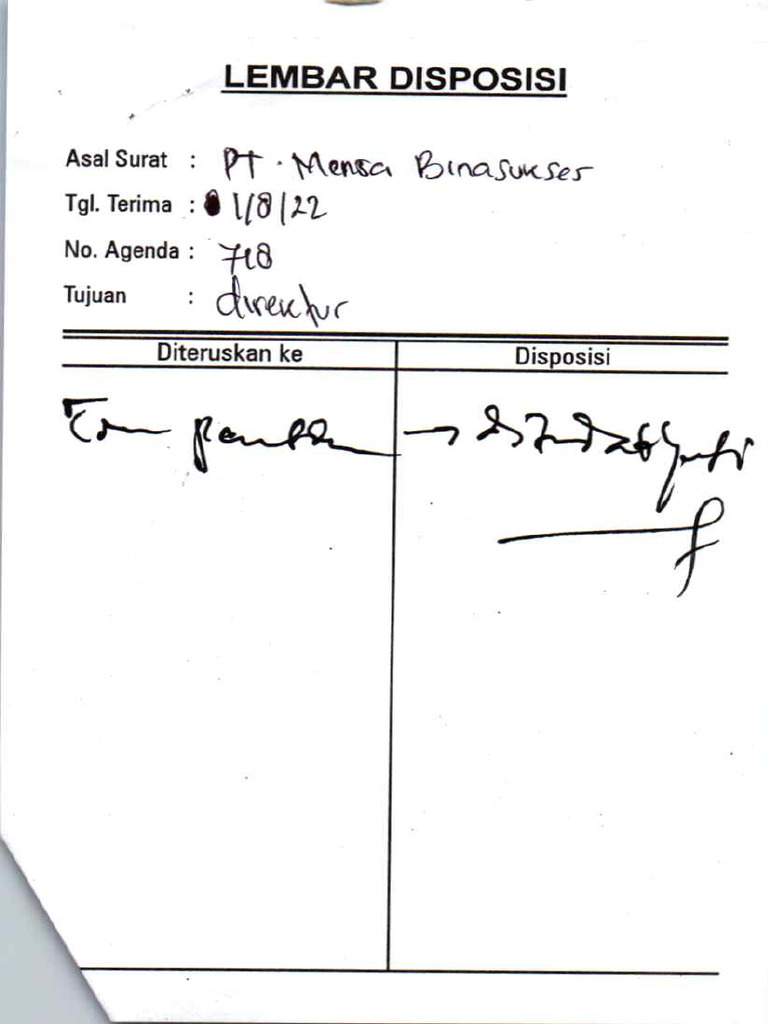 LEMBAR DISPOSISI
Asal Surat : PT. Mensa Binasukser
Tgl. Terima : 1/8/22
No. Agenda : 718
Tujuan : direktur
Diteruskan ke Disposisi